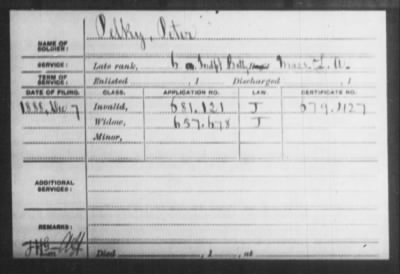 NAME OF SOLDIER: Pelky, Peter
SERVICE: Late rank, 6 Indpt Batty Mass. L. A.
TERM OF SERVICE: Enlisted , 1 Discharged , 1
DATE OF FILING. CLASS. APPLICATION NO. LAW. CERTIFICATE NO.
1888, Dec. 7 Invalid, 681.121 J 679.427
Widow, 657.678 J
Minor,
ADDITIONAL SERVICES:
REMARKS:
Died , 1 , at